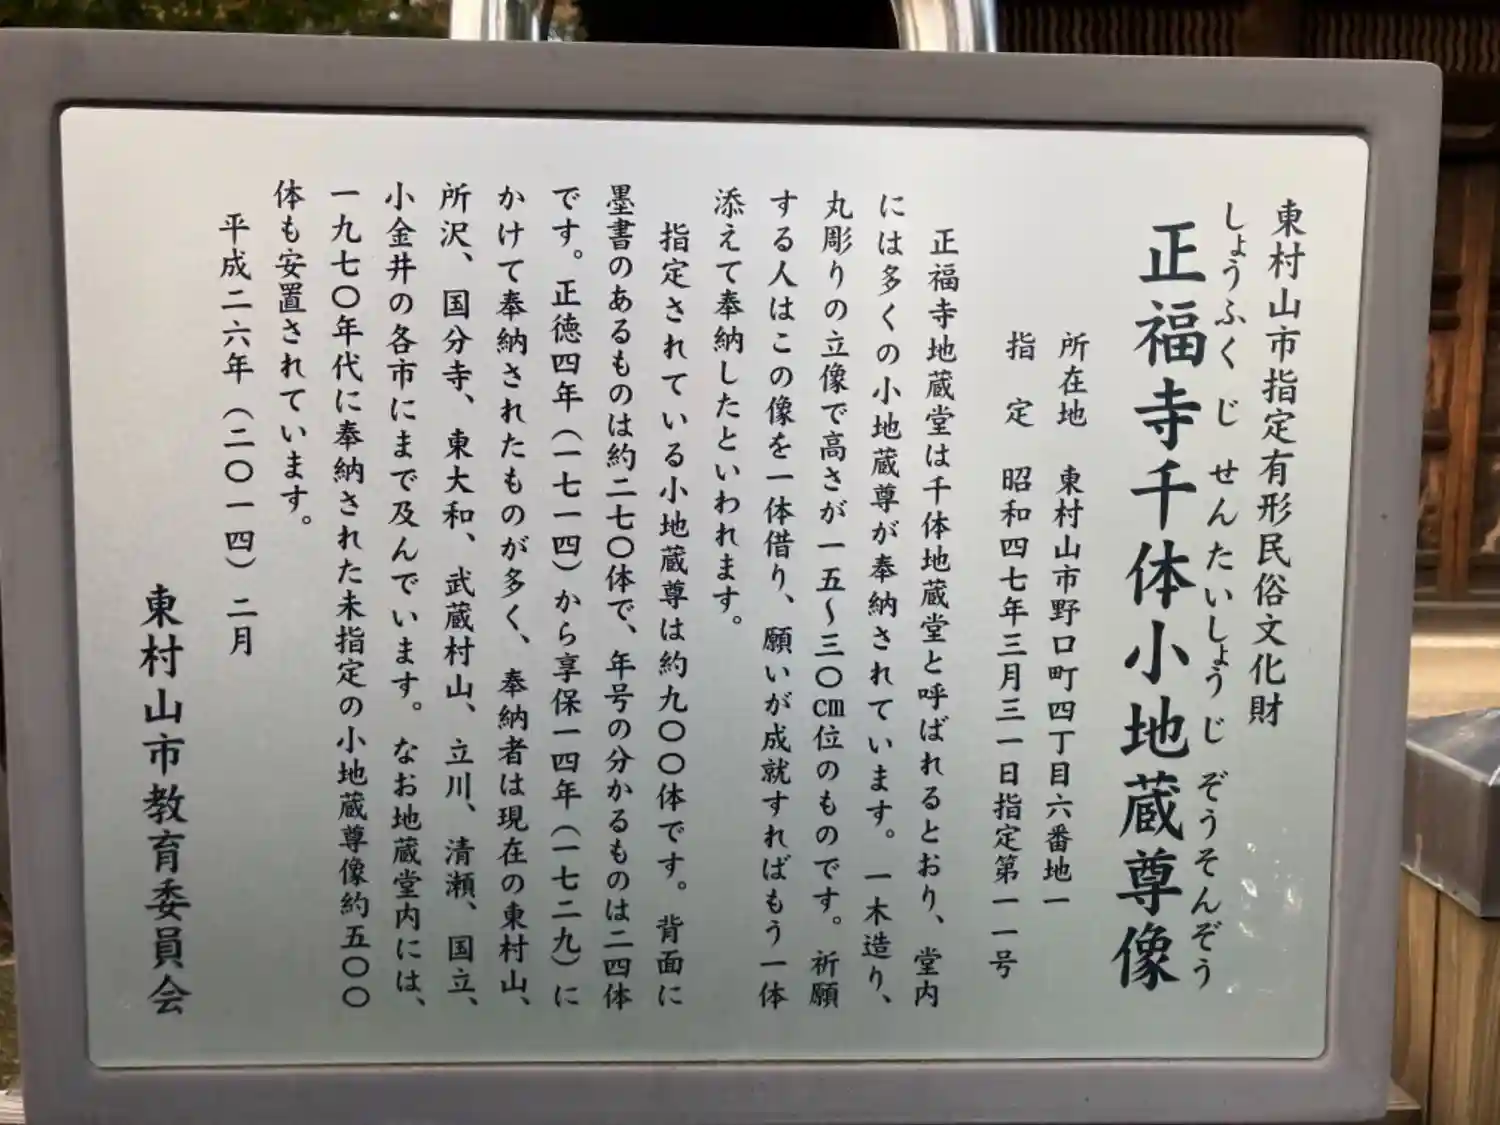 東村山市指定有形民俗文化財
しょうふくじせんたいしょうじぞうそんぞう
正福寺千体小地蔵尊像
所在地 東村山市野口町四丁目六番地一
指定 昭和四七年三月三一日指定第一一号
正福寺地蔵堂は千体地蔵堂と呼ばれるとおり、堂内
には多くの小地蔵尊が奉納されています。一木造り、
丸彫りの立像で高さが一五～三〇cm位のものです。祈願
する人はこの像を一体借り、願いが成就すればもう一体
添えて奉納したといわれます。
指定されている小地蔵尊は約九〇〇体です。背面に
墨書のあるものは約二七〇体で、年号の分かるものは二四体
です。正徳四年（一七一四）から享保一四年（一七二九）に
かけて奉納されたものが多く、奉納者は現在の東村山、
所沢、国分寺、東大和、武蔵村山、立川、清瀬、国立、
小金井の各市にまで及んでいます。なお地蔵堂内には、
一九七〇年代に奉納された未指定の小地蔵尊像約五〇〇
体も安置されています。
平成二六年（二〇一四）二月
東村山市教育委員会